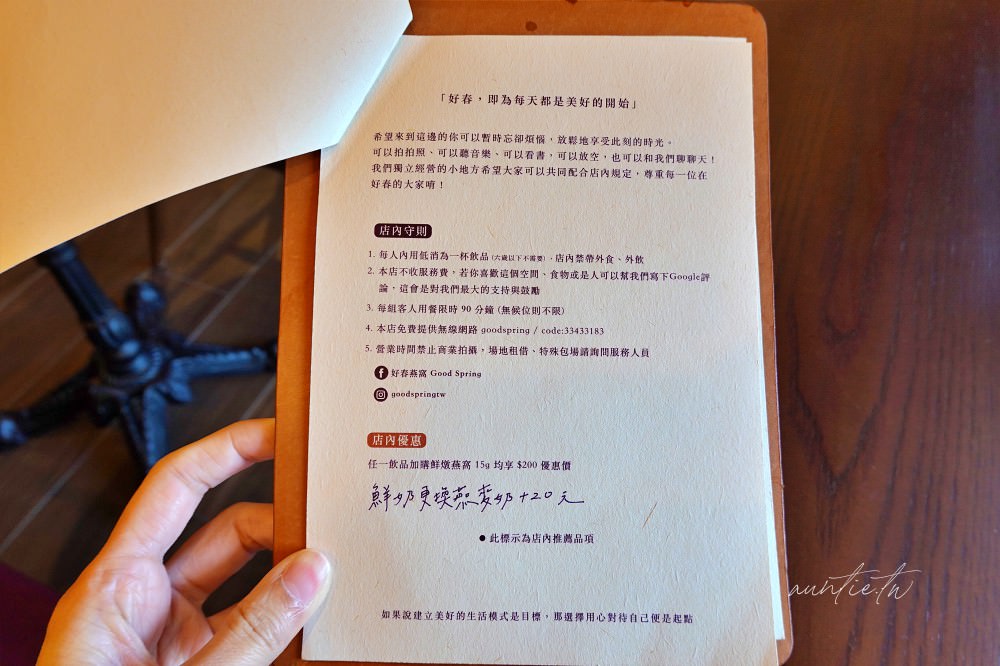 「好春，即為每天都是美好的開始」
希望來到這邊的你可以暫時忘卻煩惱，放鬆地享受此刻的時光。
可以拍拍照、可以聽音樂、可以看書，可以放空，也可以和我們聊聊天！
我們獨立經營的小地方希望大家可以共同配合店內規定，尊重每一位在
好春的大家唷！
店內守則
1. 每人內用低消為一杯飲品 (六歲以下不需要)，店內禁帶外食、外飲
2. 本店不收服務費，若你喜歡這個空間、食物或是人可以幫我們寫下Google評
論，這會是對我們最大的支持與鼓勵
3. 每組客人用餐限時 90 分鐘 (無候位則不限)
4. 本店免費提供無線網路 goodspring / code:33433183
5. 營業時間禁止商業拍攝，場地租借、特殊包場請詢問服務人員
好春燕窩 Good Spring
goodspringtw
店內優惠
任一飲品加購鮮燉燕窩 15g 均享 $200 優惠價
鮮奶更換燕麥奶+20元
● 此標示為店內推薦品項
如果說建立美好的生活模式是目標，那選擇用心對待自己便是起點
auntie.tw